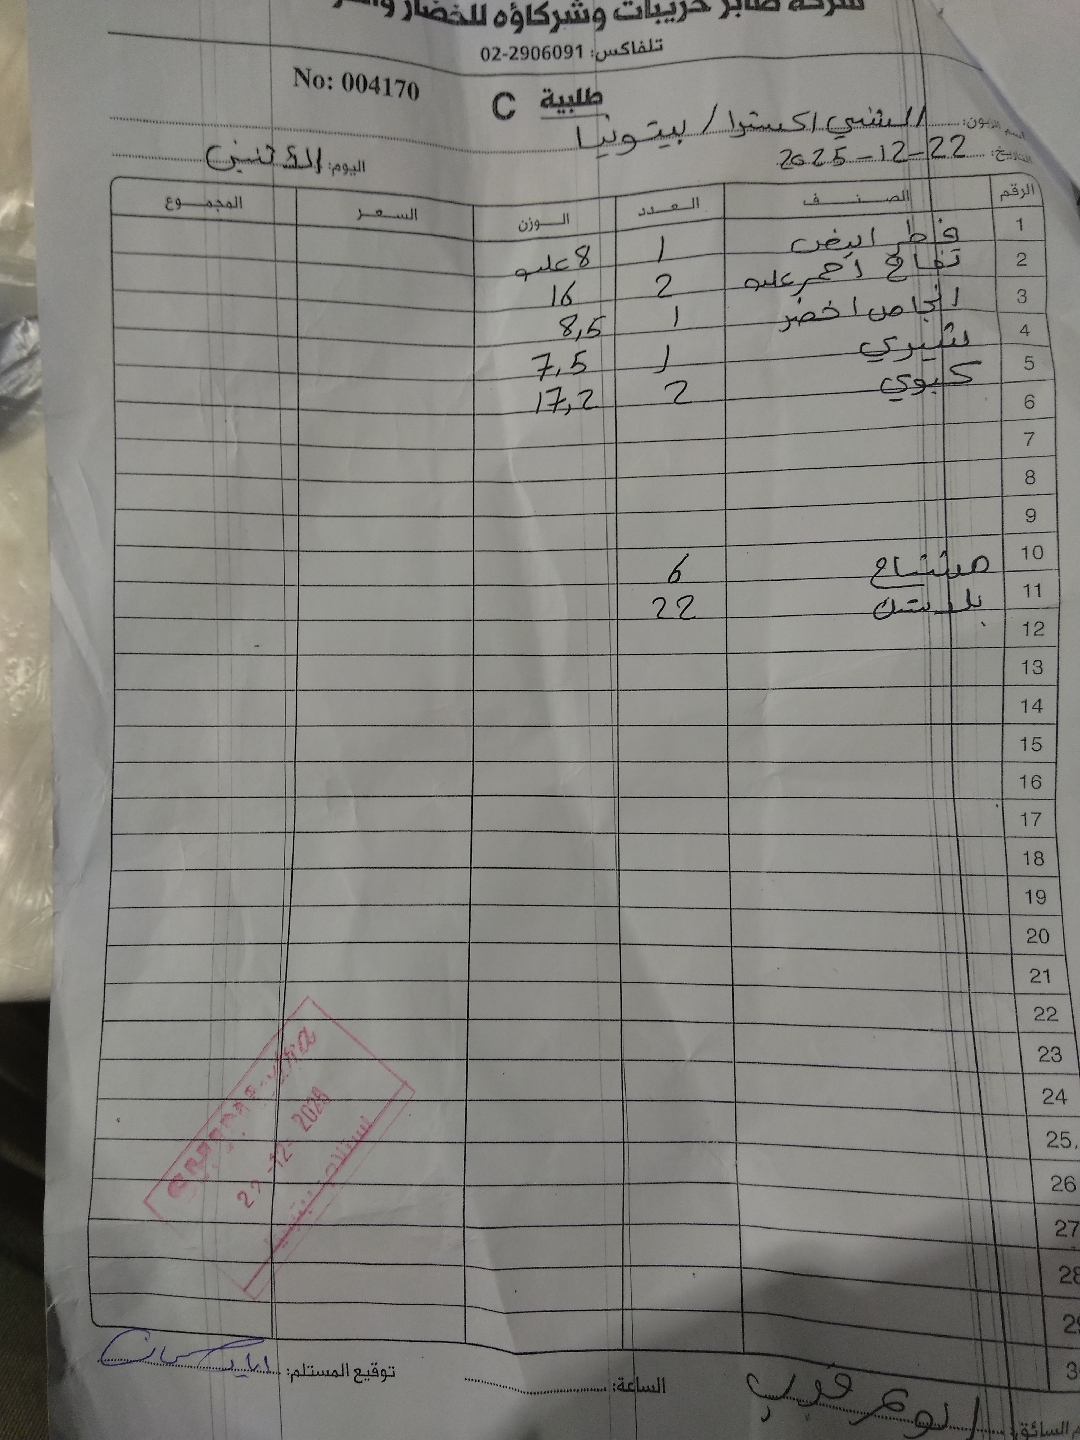 شركة صابر حريبات وشركاؤه للخضار
تلفاكس: 02-2906091
No: 004170
طلبية C
الشني اكسترا / بيتونيا
التاريخ: 22-12-2025
اليوم: الاثنين
الرقم الصنف العدد الوزن السعر المجموع
1 فطر ابيض 1 8 علبه
2 تفاح احمر علبه 2 16
3 انجاص اخضر 1 8,5
4 شيري 1 7,5
5 كيوي 2 17,2
6
7
8
9
10 مشتاح 6
11 بلاستك 22
12
13
14
15
16
17
18
19
20
21
22
23
24
25
26
27
28
29
3
-12- 2025
استلام بيتونيا
توقيع المستلم:
الساعة:
السائق: